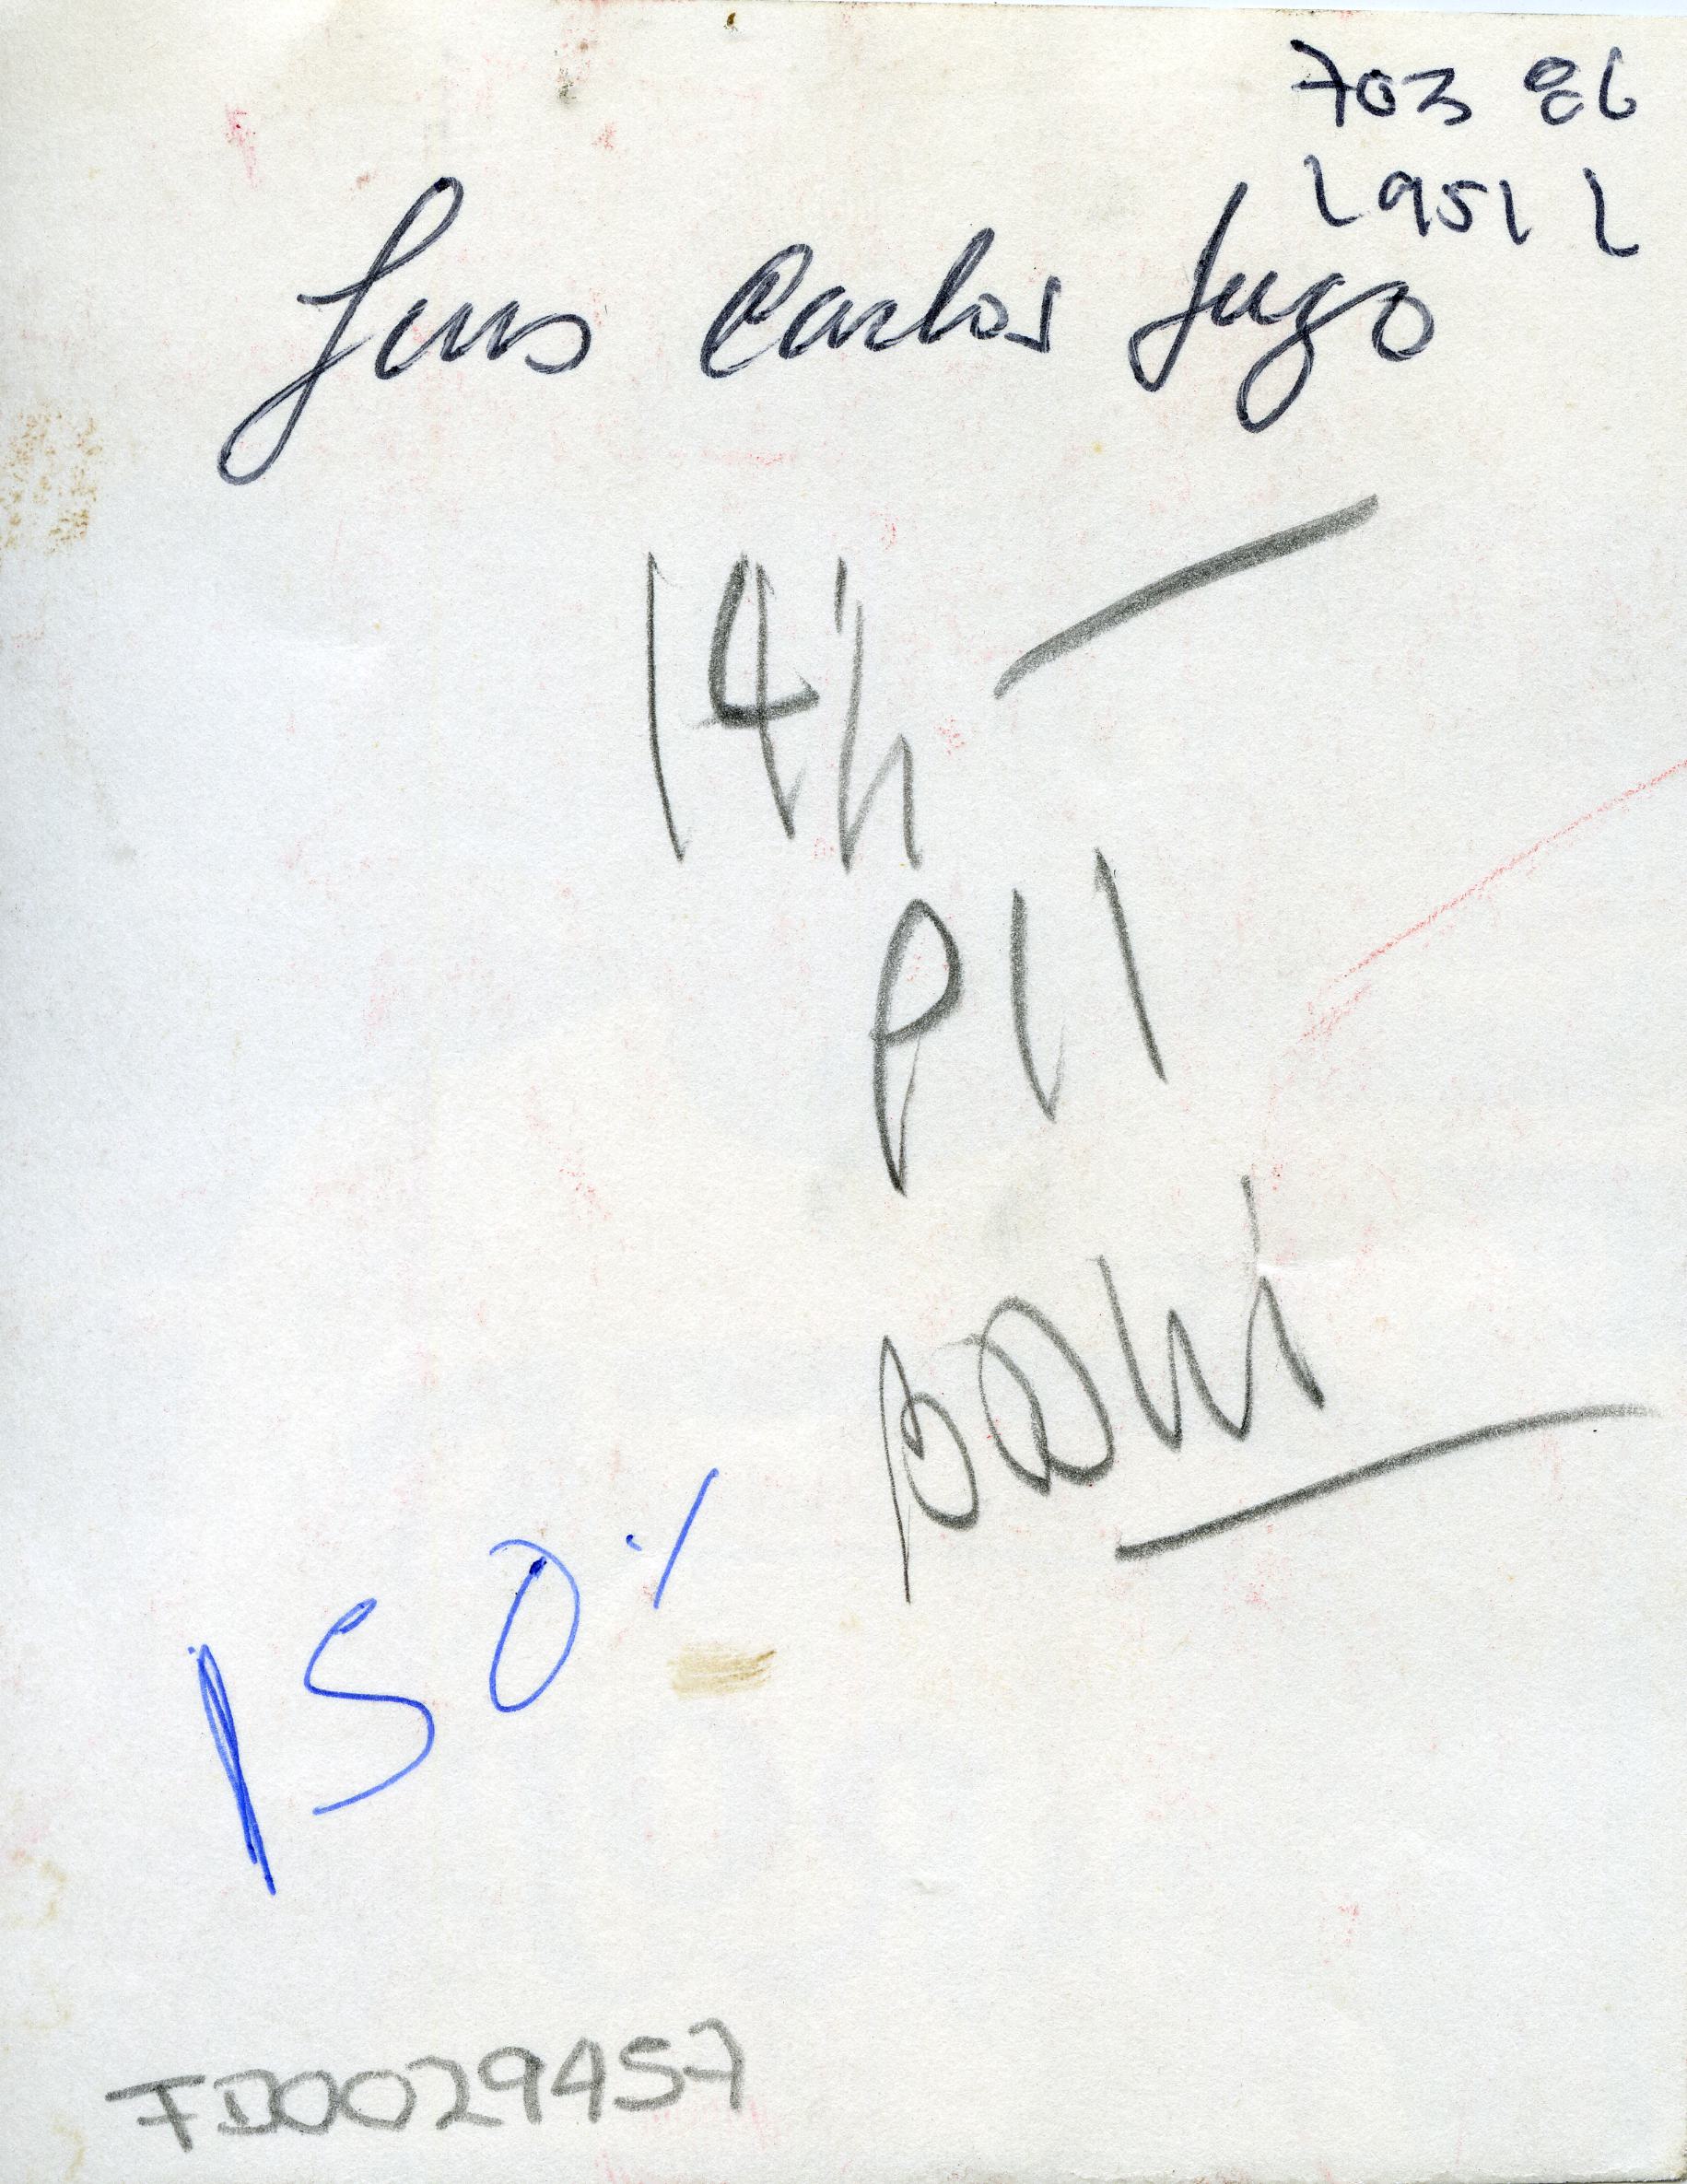 703 86
L951 L
Luis Carlos Lugo
14h
P11
150%
FD0029457